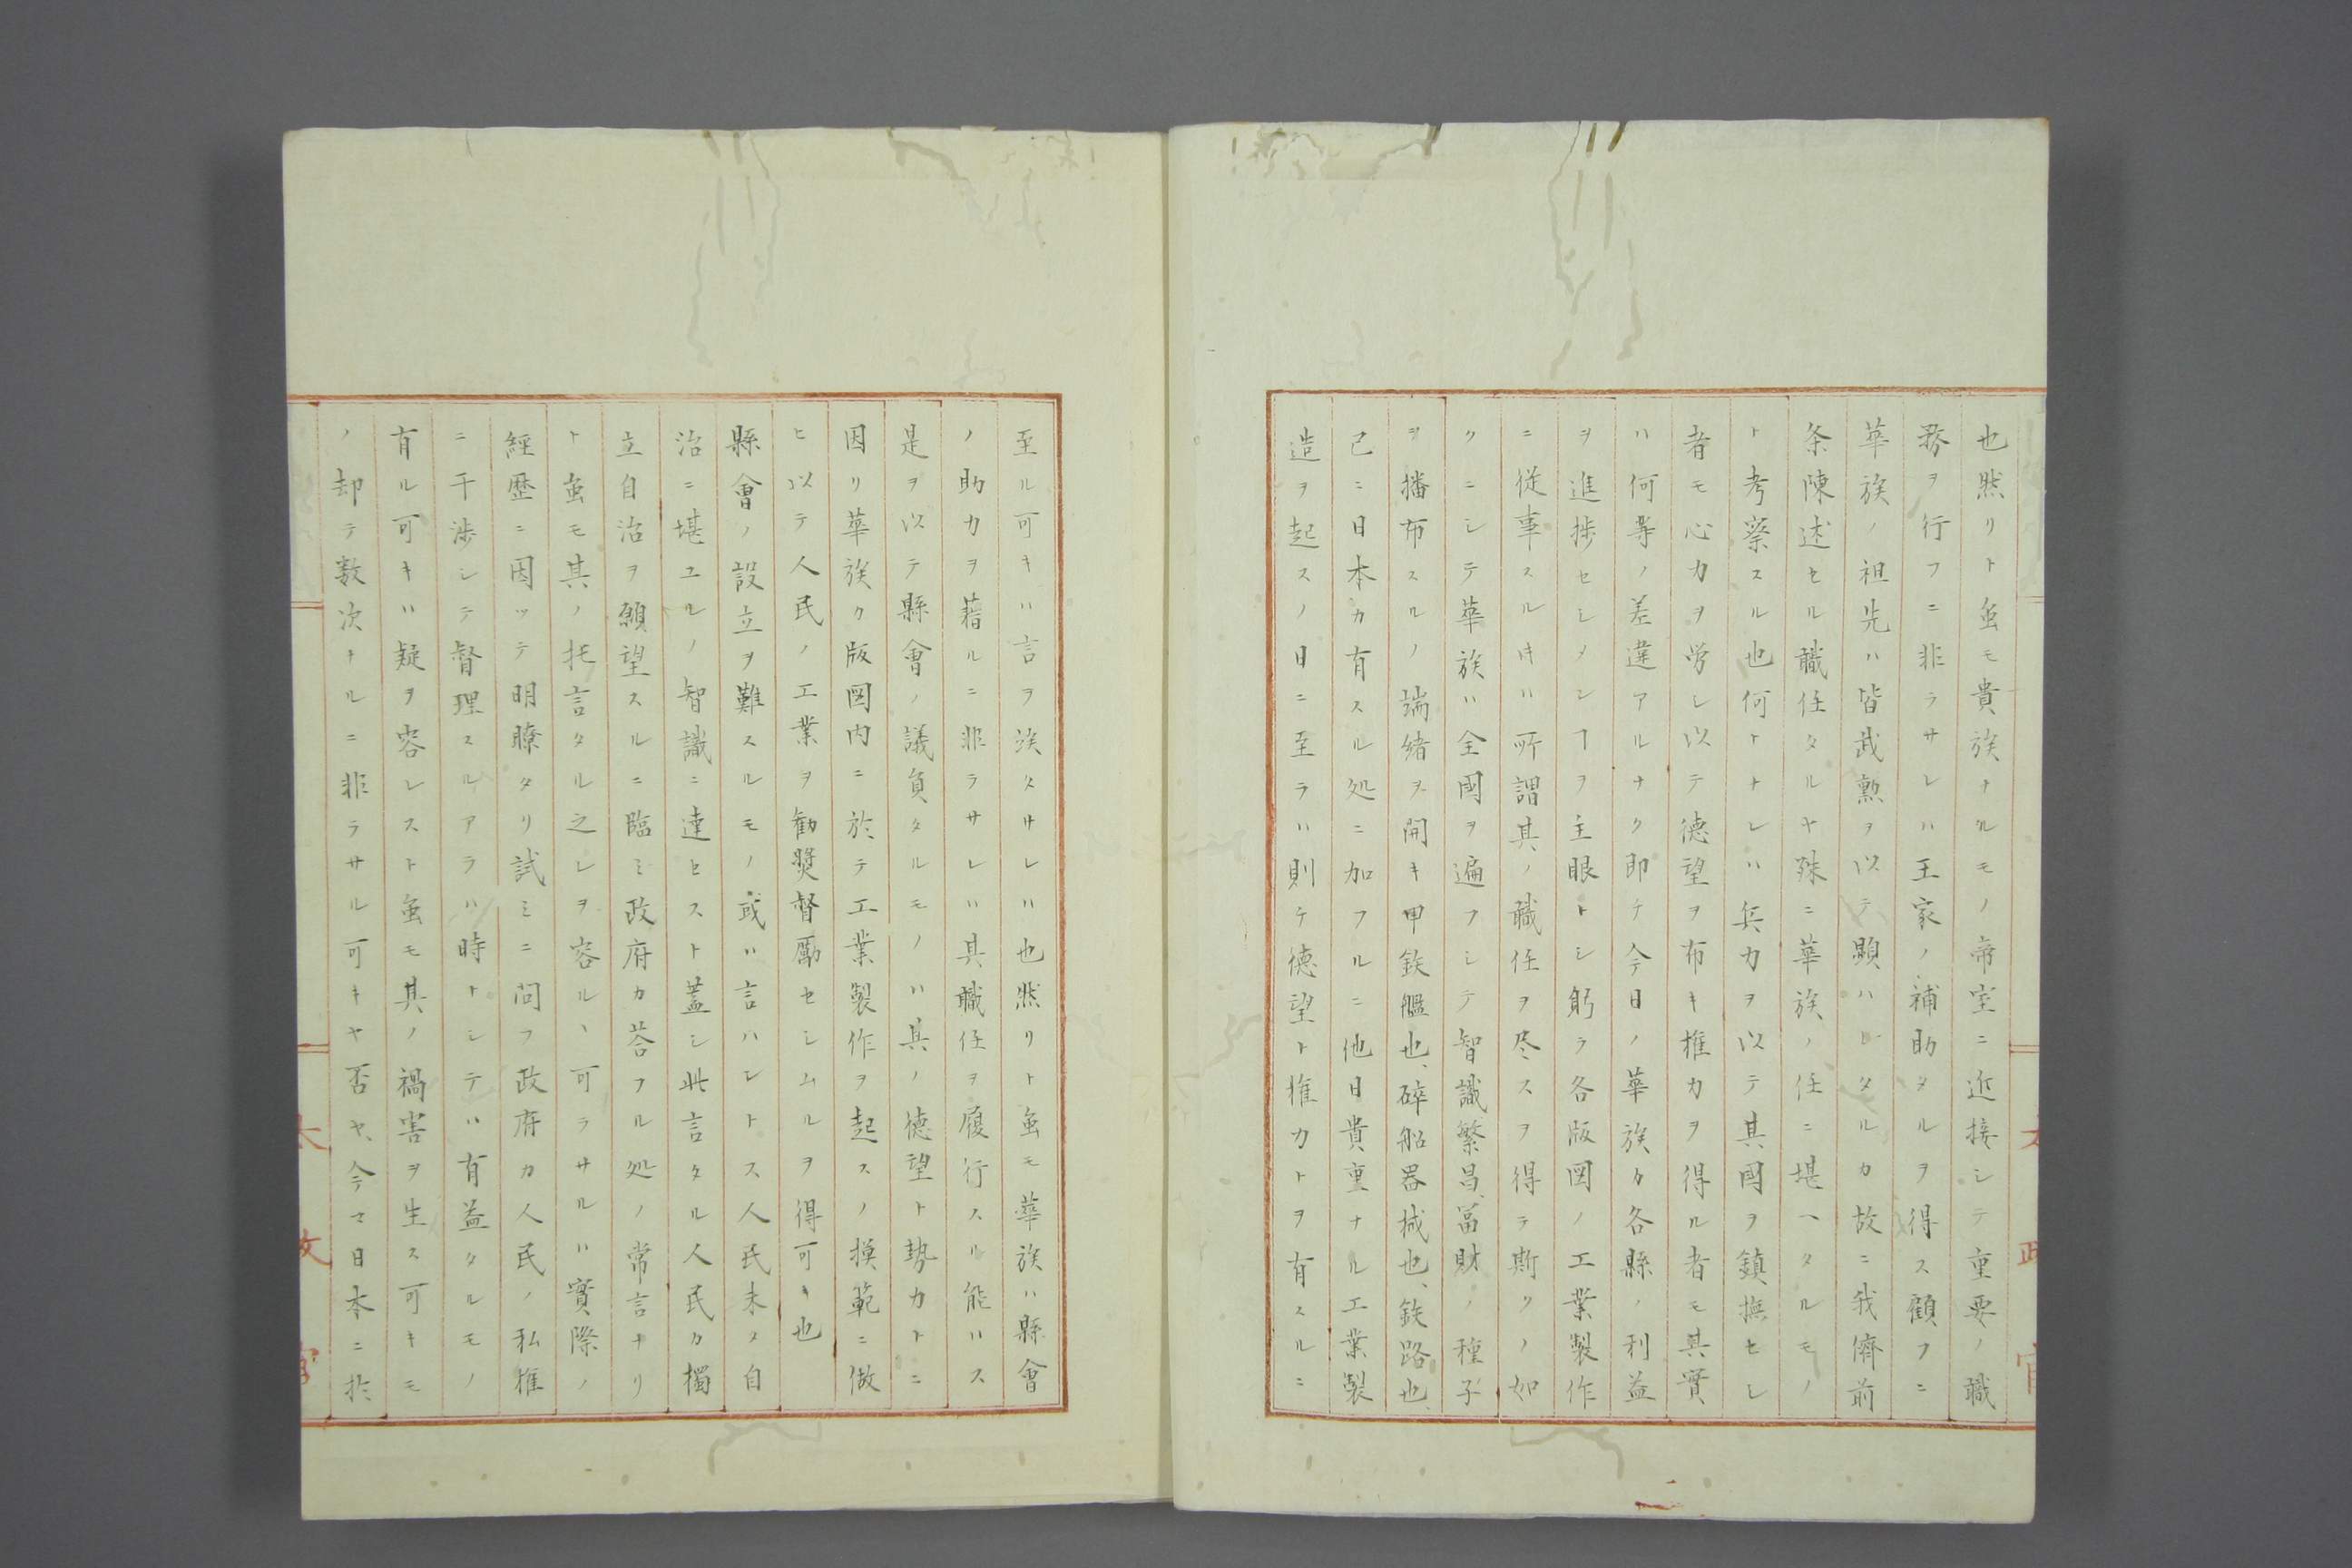 也然リト雖モ貴族ナルモノ帝室ニ近接シテ重要ノ職
務ヲ行フニ非ラサレハ王家ノ補助タルヲ得ス顧フニ
華族ノ祖先ハ皆武勲ヲ以テ顕ハレタルカ故ニ我儕前
条陳述セル職任タルヤ殊ニ華族ノ任ニ堪ヘタルモノ
ト考察スル也何トナレハ兵力ヲ以テ其國ヲ鎮撫セシ
者モ心力ヲ労シ以テ徳望ヲ布キ権力ヲ得ル者モ其實
ハ何等ノ差違アルナク即チ今日ノ華族カ各縣ノ利益
ヲ進捗セシメンヿヲ主眼トシ躬ラ各版図ノ工業製作
ニ従事スル時ハ所謂其ノ職任ヲ尽スヲ得テ斯クノ如
クニシテ華族ハ全國ヲ遍フシテ智識繁昌、冨財ノ種子
ヲ播布スルノ端緒ヲ開キ甲鉄艦也、碎船器械也、鉄路也、
已ニ日本カ有スル処ニ加フルニ他日貴重ナル工業製
造ヲ起スノ日ニ至ラハ則チ徳望ト権力トヲ有スルニ
至ル可キハ言ヲ俟タサレハ也然リト雖モ華族ハ縣會
ノ助力ヲ藉ルニ非ラサレハ其職任ヲ履行スル能ハス
是ヲ以テ縣會ノ議員タルモノハ其ノ徳望ト勢力トニ
因リ華族ク版図内ニ於テ工業製作ヲ起スノ摸範ニ倣
ヒ以テ人民ノ工業ヲ勧奨督勵セシムルヲ得可キ也
縣會ノ設立ヲ難スルモノ或ハ言ハントス人民未タ自
治ニ堪ユルノ智識ニ達セスト蓋シ此言タル人民カ獨
立自治ヲ願望スルニ臨ミ政府カ荅フル処ノ常言ナリ
ト雖モ其ノ托言タル之レヲ容ルヽ可ラサルハ實際ノ
經歴ニ因ッテ明瞭タリ試ミニ問フ政府カ人民ノ私権
ニ干渉シテ督理スルアラハ時トシテハ有益タルモノ
有ル可キハ疑ヲ容レスト雖モ其ノ禍害ヲ生ス可キモ
ノ却テ数次ナルニ非ラサル可キヤ否ヤ、今マ日本ニ於
太政官